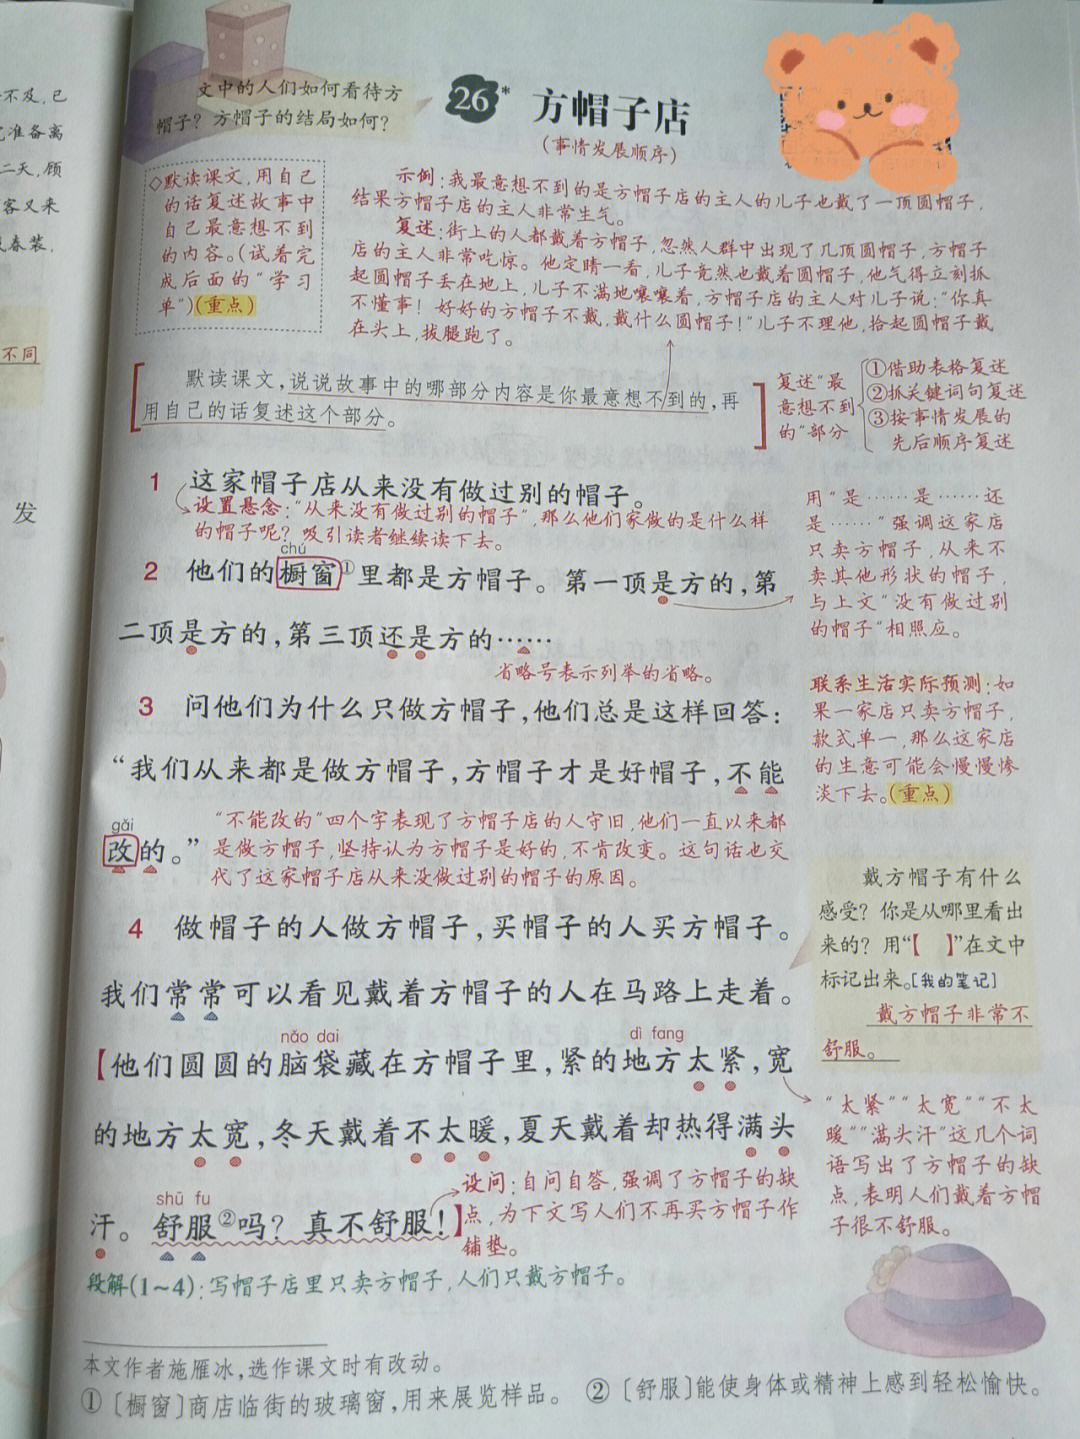 不及,已
准备离
二天,顾
客又来
春装,
不同
发
文中的人们如何看待方
帽子?方帽子的结局如何?
26*
方帽子店
(事情发展顺序)
◇默读课文,用自己
的话复述故事中
自己最意想不到
的内容。(试着完
成后面的“学习
单”)(重点)
示例:我最意想不到的是方帽子店的主人的儿子也戴了一顶圆帽子,
结果方帽子店的主人非常生气。
复述:街上的人都戴着方帽子,忽然人群中出现了几顶圆帽子,方帽子
店的主人非常吃惊。他定睛一看,儿子竟然也戴着圆帽子,他气得立刻抓
起圆帽子丢在地上,儿子不满地嚷嚷着,方帽子店的主人对儿子说:“你真
不懂事!好好的方帽子不戴,戴什么圆帽子!”儿子不理他,拾起圆帽子戴
在头上,拔腿跑了。
默读课文,说说故事中的哪部分内容是你最意想不到的,再
用自己的话复述这个部分。
复述“最
意想不到
的”部分
①借助表格复述
②抓关键词句复述
③按事情发展的
先后顺序复述
1 这家帽子店从来没有做过别的帽子。
设置悬念:“从来没有做过别的帽子”,那么他们家做的是什么样
的帽子呢?吸引读者继续读下去。
chú
2 他们的橱窗①里都是方帽子。第一顶是方的,第
二顶是方的,第三顶还是方的……
省略号表示列举的省略。
用“是……是……还
是……”强调这家店
只卖方帽子,从来不
卖其他形状的帽子,
与上文“没有做过别
的帽子”相照应。
3 问他们为什么只做方帽子,他们总是这样回答:
“我们从来都是做方帽子,方帽子才是好帽子,不能
gǎi
改的。”
“不能改的”四个字表现了方帽子店的人守旧,他们一直以来都
是做方帽子,坚持认为方帽子是好的,不肯改变。这句话也交
代了这家帽子店从来没做过别的帽子的原因。
联系生活实际预测:如
果一家店只卖方帽子,
款式单一,那么这家店
的生意可能会慢慢惨
淡下去。(重点)
4 做帽子的人做方帽子,买帽子的人买方帽子。
我们常常可以看见戴着方帽子的人在马路上走着。
nǎo dai
dì fang
【他们圆圆的脑袋藏在方帽子里,紧的地方太紧,宽
的地方太宽,冬天戴着不太暖,夏天戴着却热得满头
shū fu
汗。舒服②吗?真不舒服!】
设问:自问自答,强调了方帽子的缺
点,为下文写人们不再买方帽子作
铺垫。
段解(1~4):写帽子店里只卖方帽子,人们只戴方帽子。
戴方帽子有什么
感受?你是从哪里看出
来的?用“【 】”在文中
标记出来。[我的笔记]
戴方帽子非常不
舒服。
“太紧”“太宽”“不太
暖”“满头汗”这几个词
语写出了方帽子的缺
点,表明人们戴着方帽
子很不舒服。
本文作者施雁冰,选作课文时有改动。
①〔橱窗〕商店临街的玻璃窗,用来展览样品。 ②〔舒服〕能使身体或精神上感到轻松愉快。